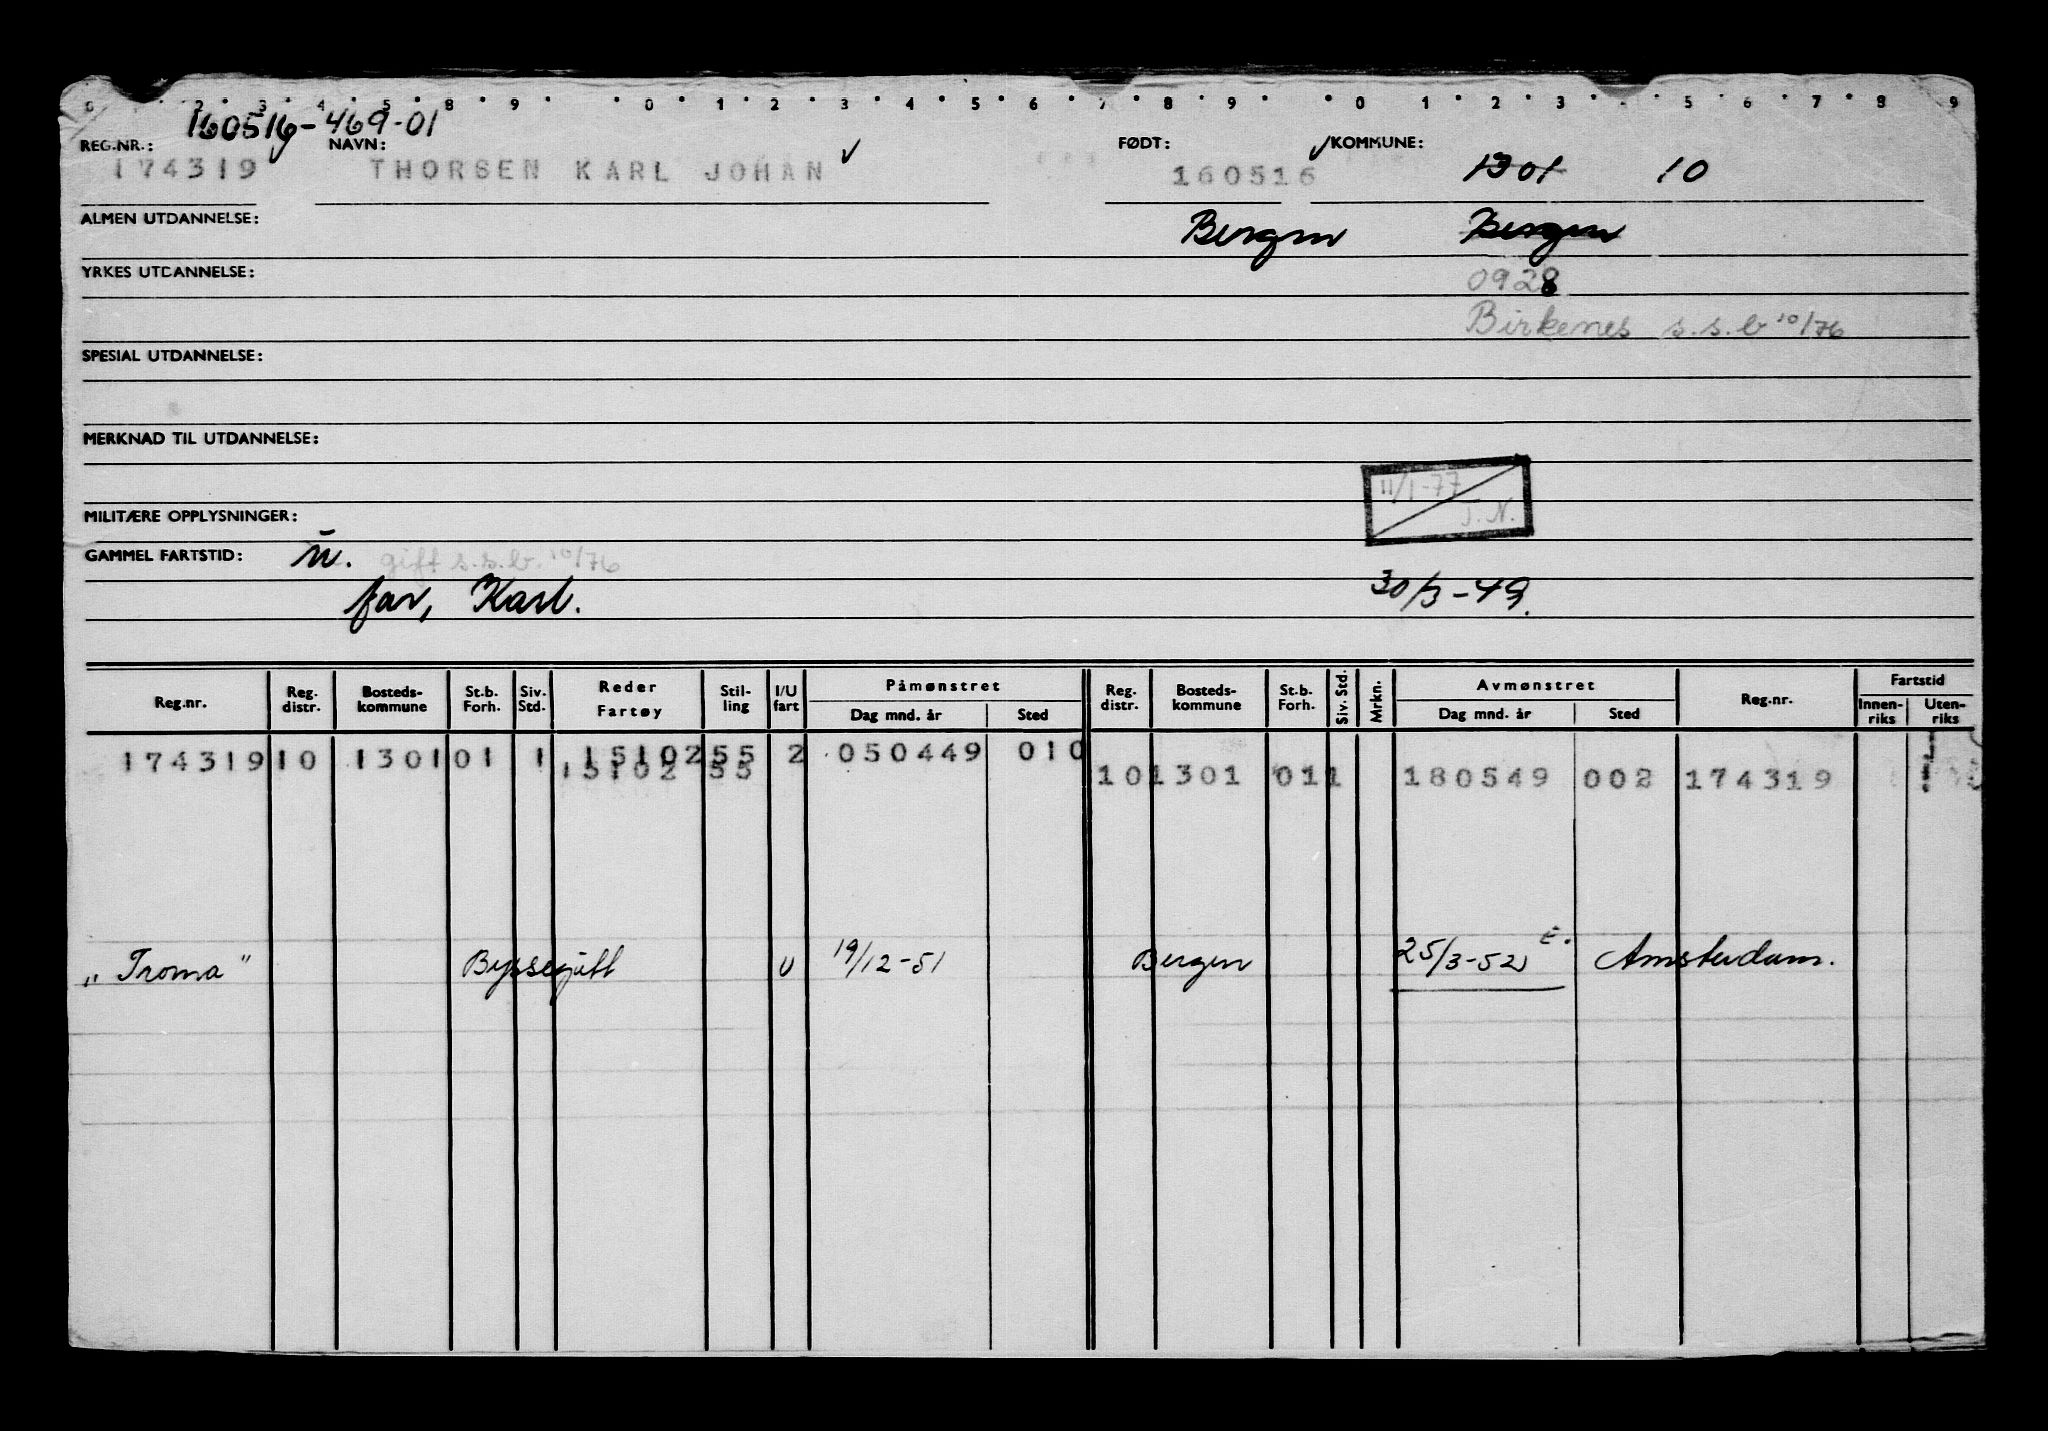 0 2 3 4 5 8 9 0 1 2 3 4 5 6 7 8 9 0 1 2 3 5 6 7 8 9
160516-469-01
REG.NR.: NAVN: FØDT: KOMMUNE:
174319 THORSEN KARL JOHAN 160516 1301 10
ALMEN UTDANNELSE: Bergen Bergen
YRKES UTDANNELSE: 0928
Birkenes s.s.b 10/76
SPESIAL UTDANNELSE:
MERKNAD TIL UTDANNELSE:
11/1-77
MILITÆRE OPPLYSNINGER: T.N.
GAMMEL FARTSTID: u. gift s.s.b. 10/76
far, Karl. 30/3-49.
Reg.nr. Reg. distr. Bosteds-kommune St.b. Forh. Siv. Std. Reder Fartøy Stil-ling I/U fart Påmønstret Dag mnd. år Sted Reg. distr. Bosteds-kommune St.b. Forh. Siv. Std. Mrkn. Avmønstret Dag mnd. år Sted Reg.nr. Fartstid Innen-riks Uten-riks
174319 10 1301 01 1 15102 55 2 050449 010
15102 55 10 1301 01 1 180549 002 174319
"Troma" Byssegutt U 19/12-51 Bergen 25/3-52 E. Amsterdam.